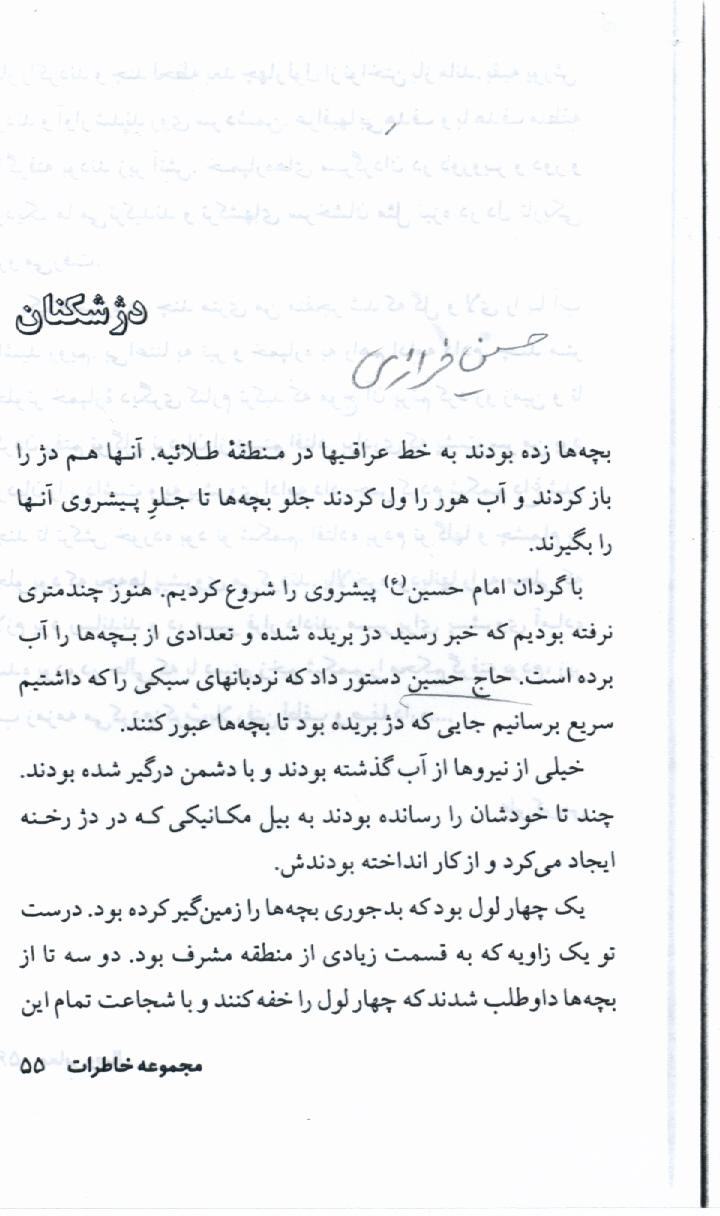 دژشکنان
حسین خرازی
بچه‌ها زده بودند به خط عراقیها در منطقهٔ طلائیه. آنها هم دژ را
باز کردند و آب هور را ول کردند جلو بچه‌ها تا جلوِ پیشروی آنها
را بگیرند.
با گردان امام حسین(ع) پیشروی را شروع کردیم. هنوز چندمتری
نرفته بودیم که خبر رسید دژ بریده شده و تعدادی از بچه‌ها را آب
برده است. حاج حسین دستور داد که نردبانهای سبکی را که داشتیم
سریع برسانیم جایی که دژ بریده بود تا بچه‌ها عبور کنند.
خیلی از نیروها از آب گذشته بودند و با دشمن درگیر شده بودند.
چند تا خودشان را رسانده بودند به بیل مکانیکی که در دژ رخنه
ایجاد می‌کرد و از کار انداخته بودندش.
یک چهار لول بود که بدجوری بچه‌ها را زمین‌گیر کرده بود. درست
تو یک زاویه که به قسمت زیادی از منطقه مشرف بود. دو سه تا از
بچه‌ها داوطلب شدند که چهار لول را خفه کنند و با شجاعت تمام این
مجموعه خاطرات ۵۵